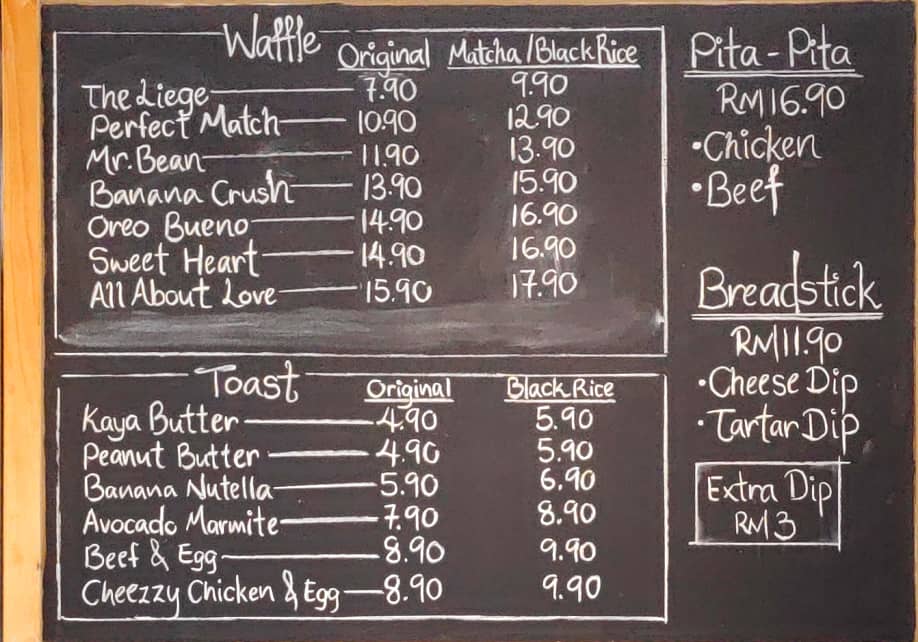 Waffle Original Matcha/Black Rice
The Liege 7.90 9.90
Perfect Match 10.90 12.90
Mr. Bean 11.90 13.90
Banana Crush 13.90 15.90
Oreo Bueno 14.90 16.90
Sweet Heart 14.90 16.90
All About Love 15.90 17.90
Toast Original Black Rice
Kaya Butter 4.90 5.90
Peanut Butter 4.90 5.90
Banana Nutella 5.90 6.90
Avocado Marmite 7.90 8.90
Beef & Egg 8.90 9.90
Cheezzy Chicken & Egg 8.90 9.90
Pita-Pita
RM16.90
•Chicken
•Beef
Breadstick
RM11.90
•Cheese Dip
•Tartar Dip
Extra Dip
RM3